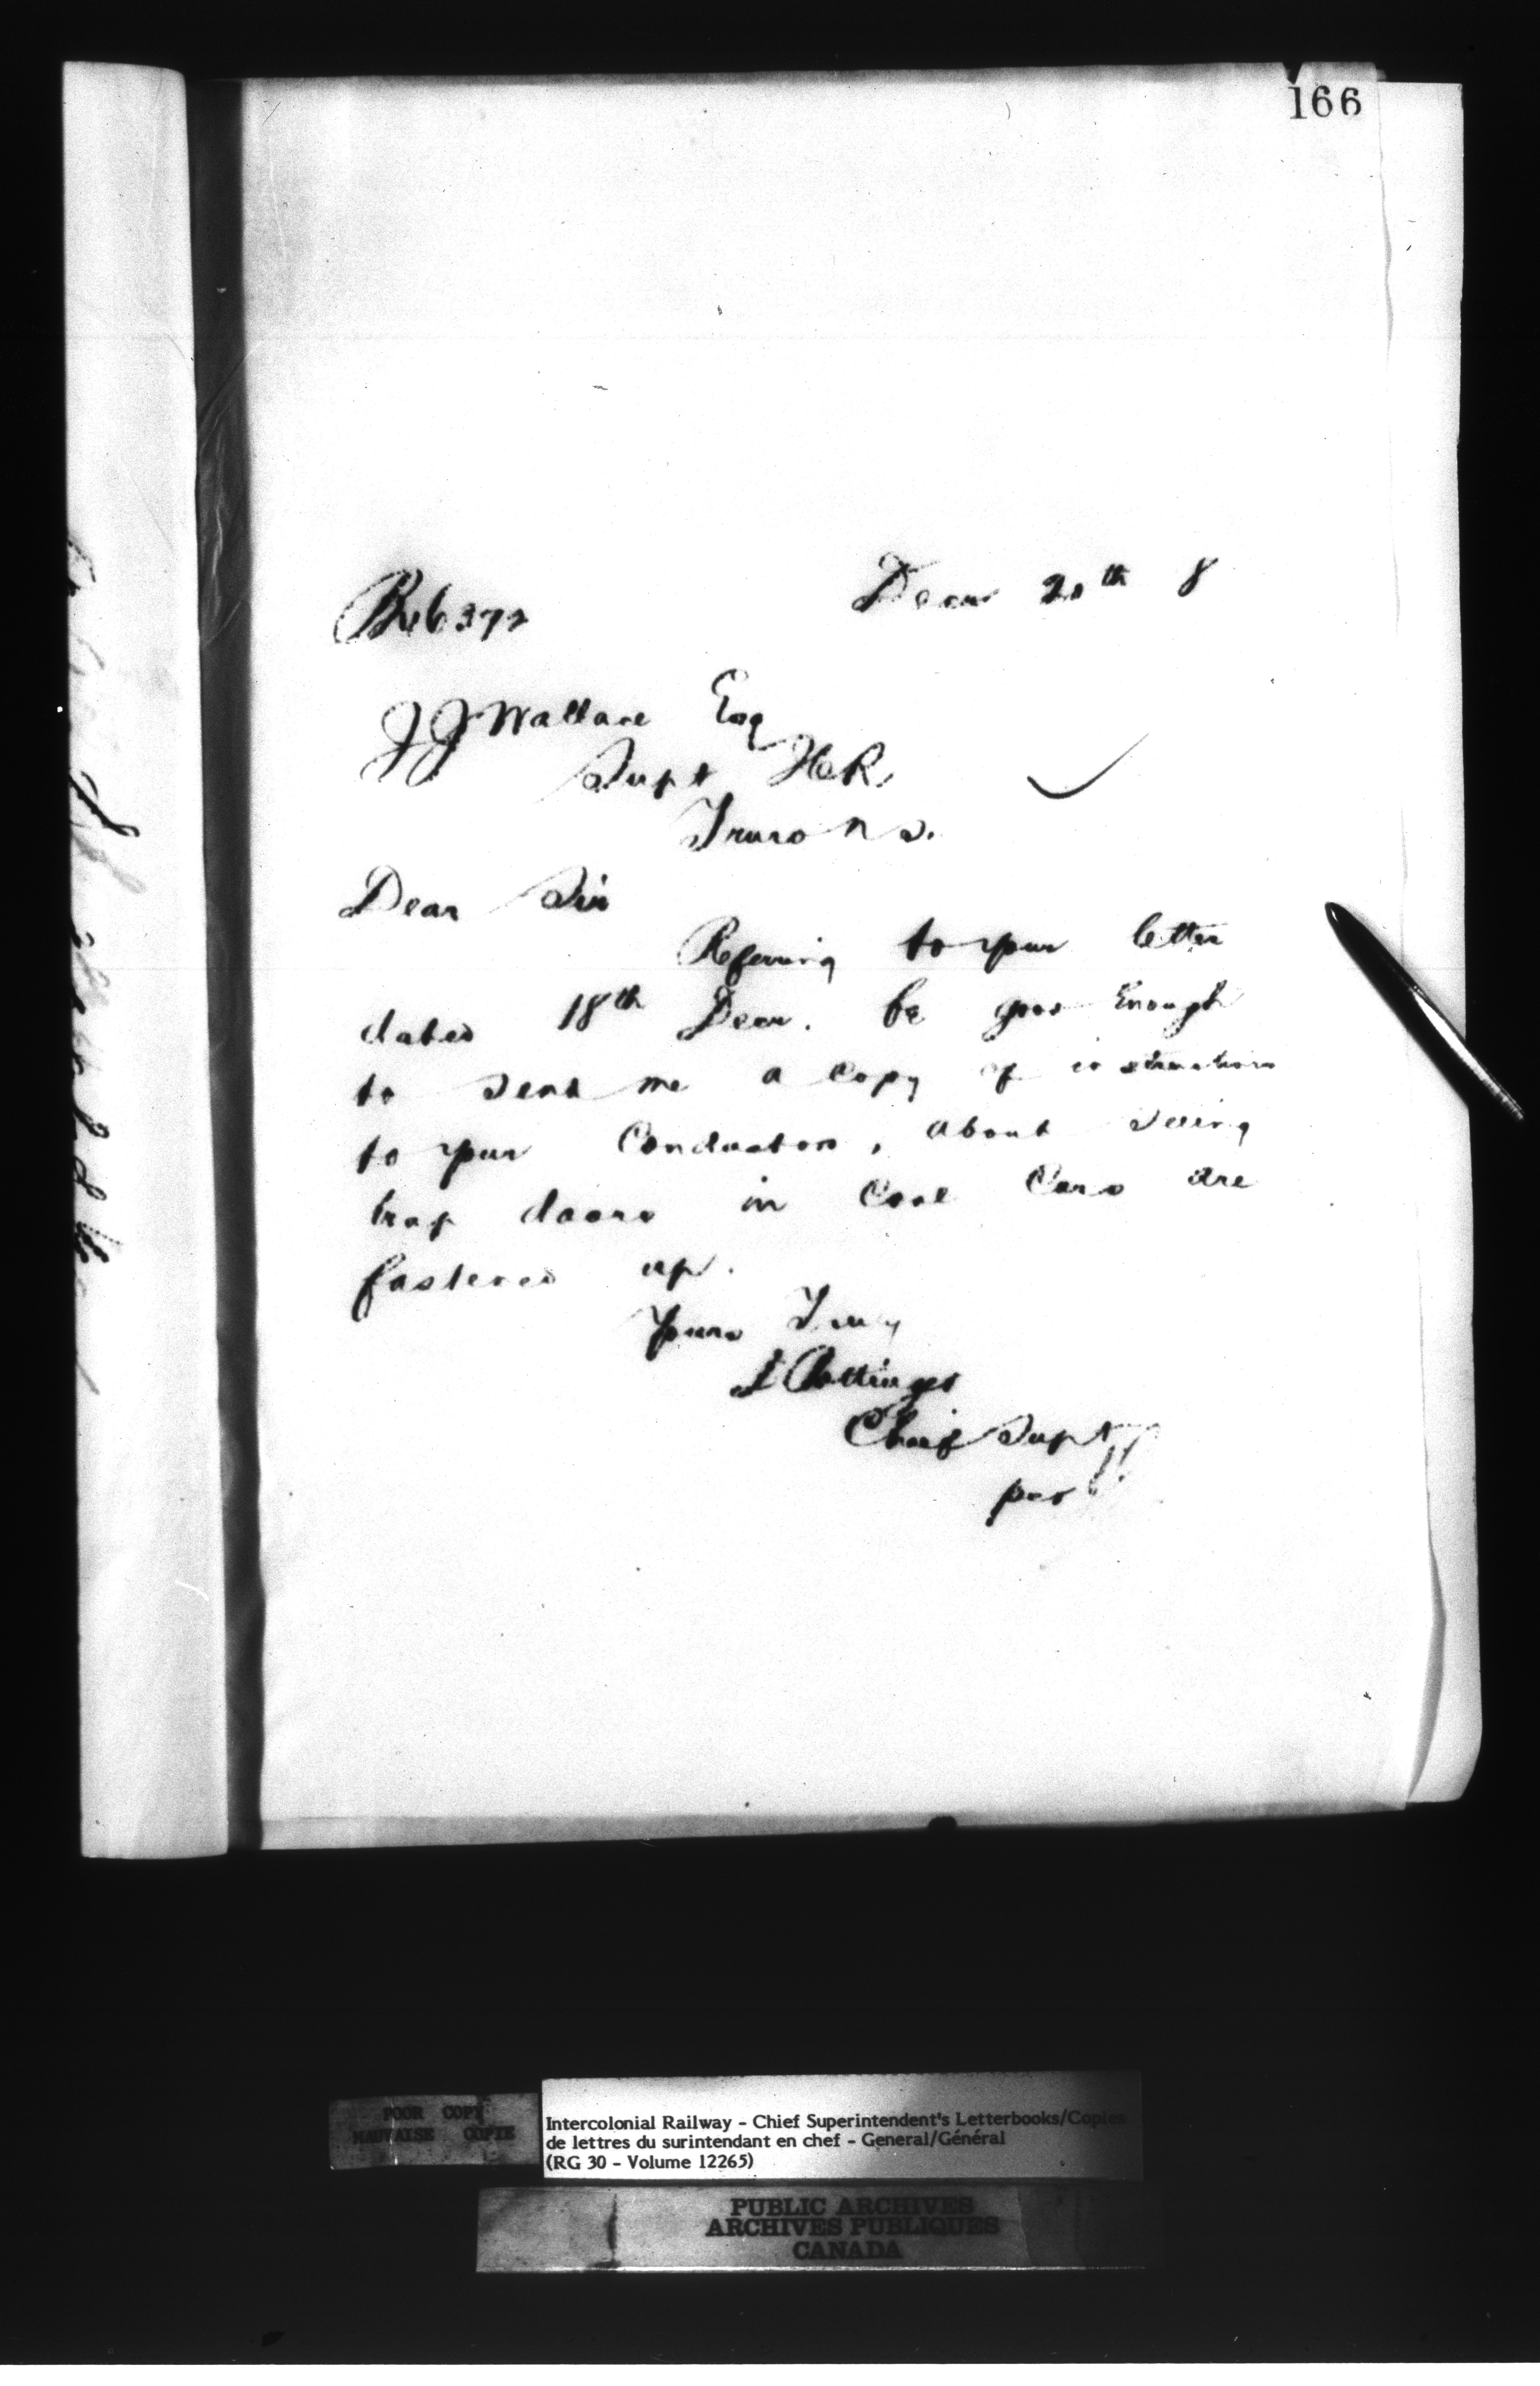 166
Decr 20th 8
Re 6372
J J Wallace Esq
Supt HR.
Truro N S.
Dear Sir
Referring to your letter
dated 18th Decr. be good Enough
to send me a copy of instructions
to your Conductors, about seeing
trap doors in Coal Cars are
fastened up.
Yours Truly
D Pottinger
Chief Supt
per
POOR COPY
MAUVAISE COPIE
Intercolonial Railway - Chief Superintendent's Letterbooks/Copies
de lettres du surintendant en chef - General/Général
(RG 30 - Volume 12265)
PUBLIC ARCHIVES
ARCHIVES PUBLIQUES
CANADA